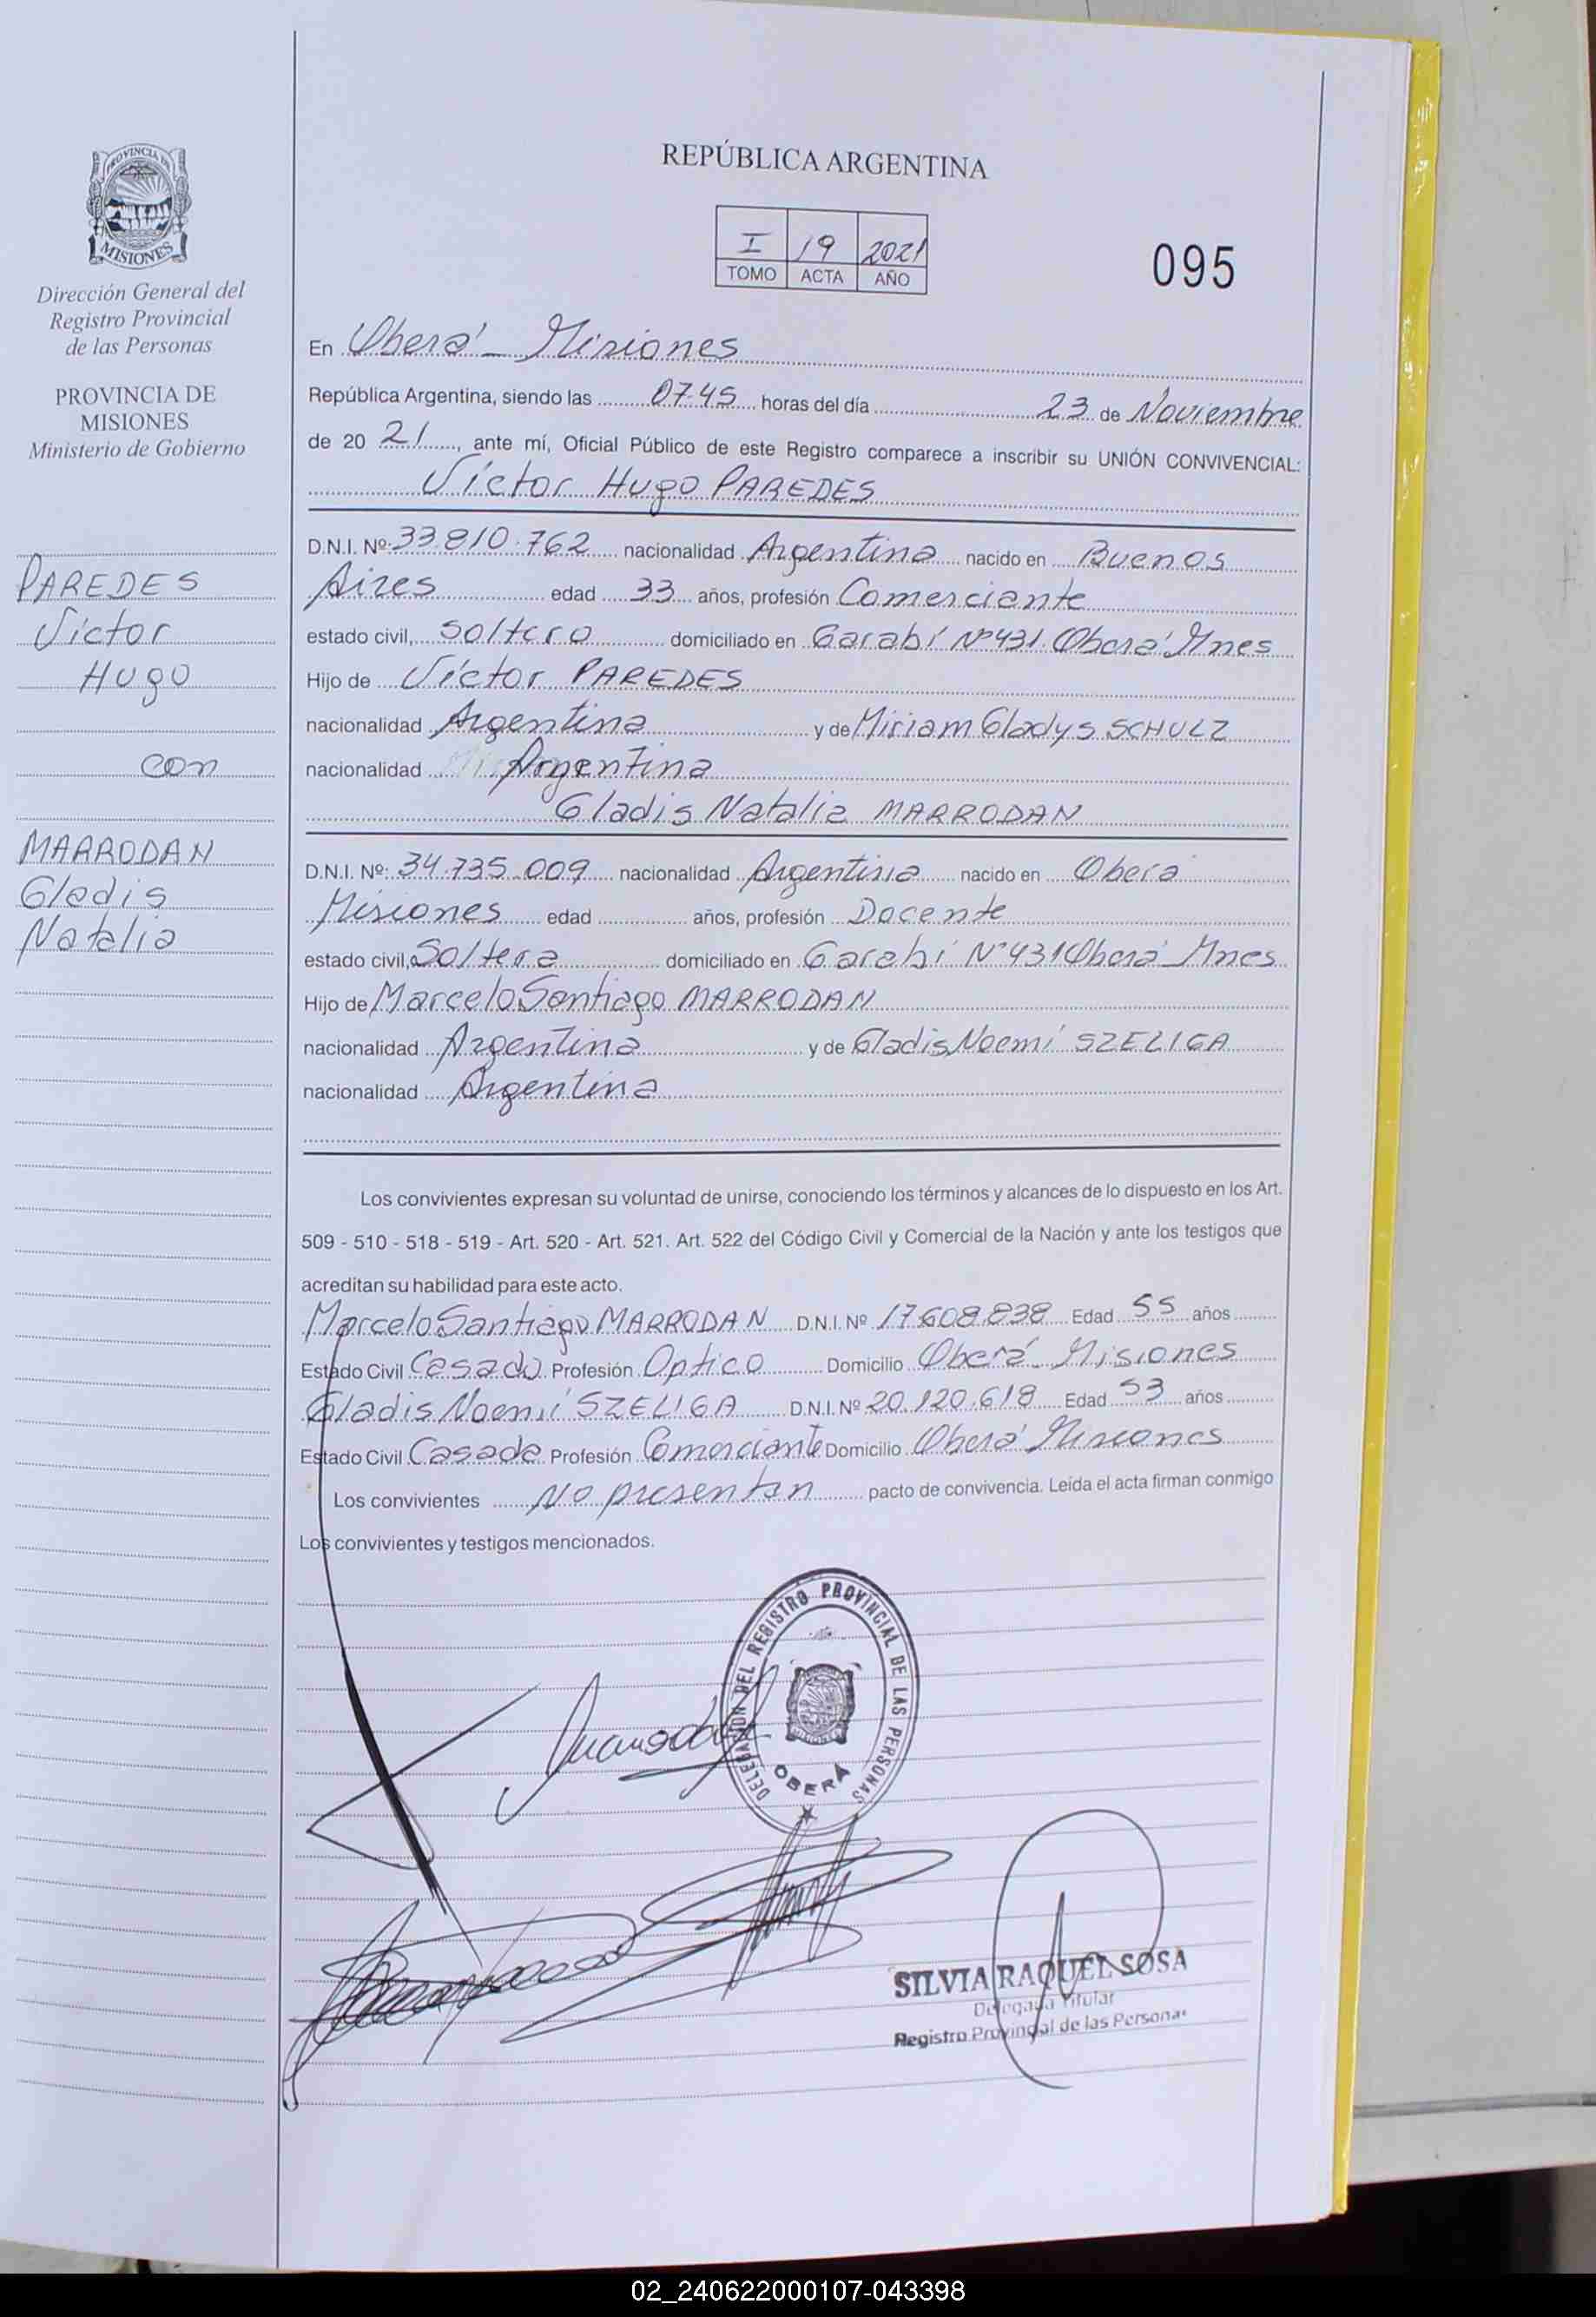 PROVINCIA DE
MISIONES
Dirección General del
Registro Provincial
de las Personas
PROVINCIA DE
MISIONES
Ministerio de Gobierno
PAREDES
Víctor
Hugo
con
MARRODAN
Gladis
Natalia
REPÚBLICA ARGENTINA
I 19 2021
TOMO ACTA AÑO
095
En Oberá - Misiones
República Argentina, siendo las 07:45 horas del día 23 de Noviembre
de 20 21, ante mí, Oficial Público de este Registro comparece a inscribir su UNIÓN CONVIVENCIAL:
Víctor Hugo PAREDES
D.N.I. Nº 33.810.762 nacionalidad Argentina nacido en Buenos
Aires edad 33 años, profesión Comerciante
estado civil, soltero domiciliado en Garabí Nº 431. Oberá Mnes
Hijo de Víctor PAREDES
nacionalidad Argentina y de Miriam Gladys SCHULZ
nacionalidad Argentina
Gladis Natalia MARRODAN
D.N.I. Nº: 34.735.009 nacionalidad Argentina nacido en Oberá
Misiones edad años, profesión Docente
estado civil, Soltera domiciliado en Garabí Nº 431 Oberá Mnes
Hijo de Marcelo Santiago MARRODAN
nacionalidad Argentina y de Gladis Noemí SZELIGA
nacionalidad Argentina
Los convivientes expresan su voluntad de unirse, conociendo los términos y alcances de lo dispuesto en los Art.
509 - 510 - 518 - 519 - Art. 520 - Art. 521. Art. 522 del Código Civil y Comercial de la Nación y ante los testigos que
acreditan su habilidad para este acto.
Marcelo Santiago MARRODAN D.N.I. Nº 17.608.838 Edad 55 años
Estado Civil Casado Profesión Optico Domicilio Oberá Misiones
Gladis Noemí SZELIGA D.N.I. Nº 20.120.618 Edad 53 años
Estado Civil Casada Profesión Comerciante Domicilio Oberá Misiones
Los convivientes No presentan pacto de convivencia. Leída el acta firman conmigo
Los convivientes y testigos mencionados.
DELEGACIÓN DEL REGISTRO PROVINCIAL DE LAS PERSONAS
OBERÁ
SILVIA RAQUEL SOSA
Delegada Titular
Registro Provincial de las Personas
02_240622000107-043398